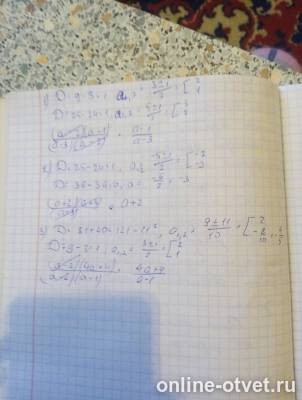 1) D=9-8=1 a₁,₂ = (3±1)/2 = [2 1
D=25-24=1, a₁,₂ = (5±1)/2 = [3 2
(a-2)(a-1)/(a-3)(a-2) = (a-1)/(a-3)
2) D=25-24=1, a₁,₂ = (-5±1)/2 = [-2 -3
D=36-36=0, a = -6/2 = -3
(a+2)(a+3) = a+2
3) D=81+40=121=11², a₁,₂ = (9±11)/10 = [2
D=9-8=1 a₁,₂ = (3±1)/2 = [2 1
(a-2)(a-1)
online-otvet.ru